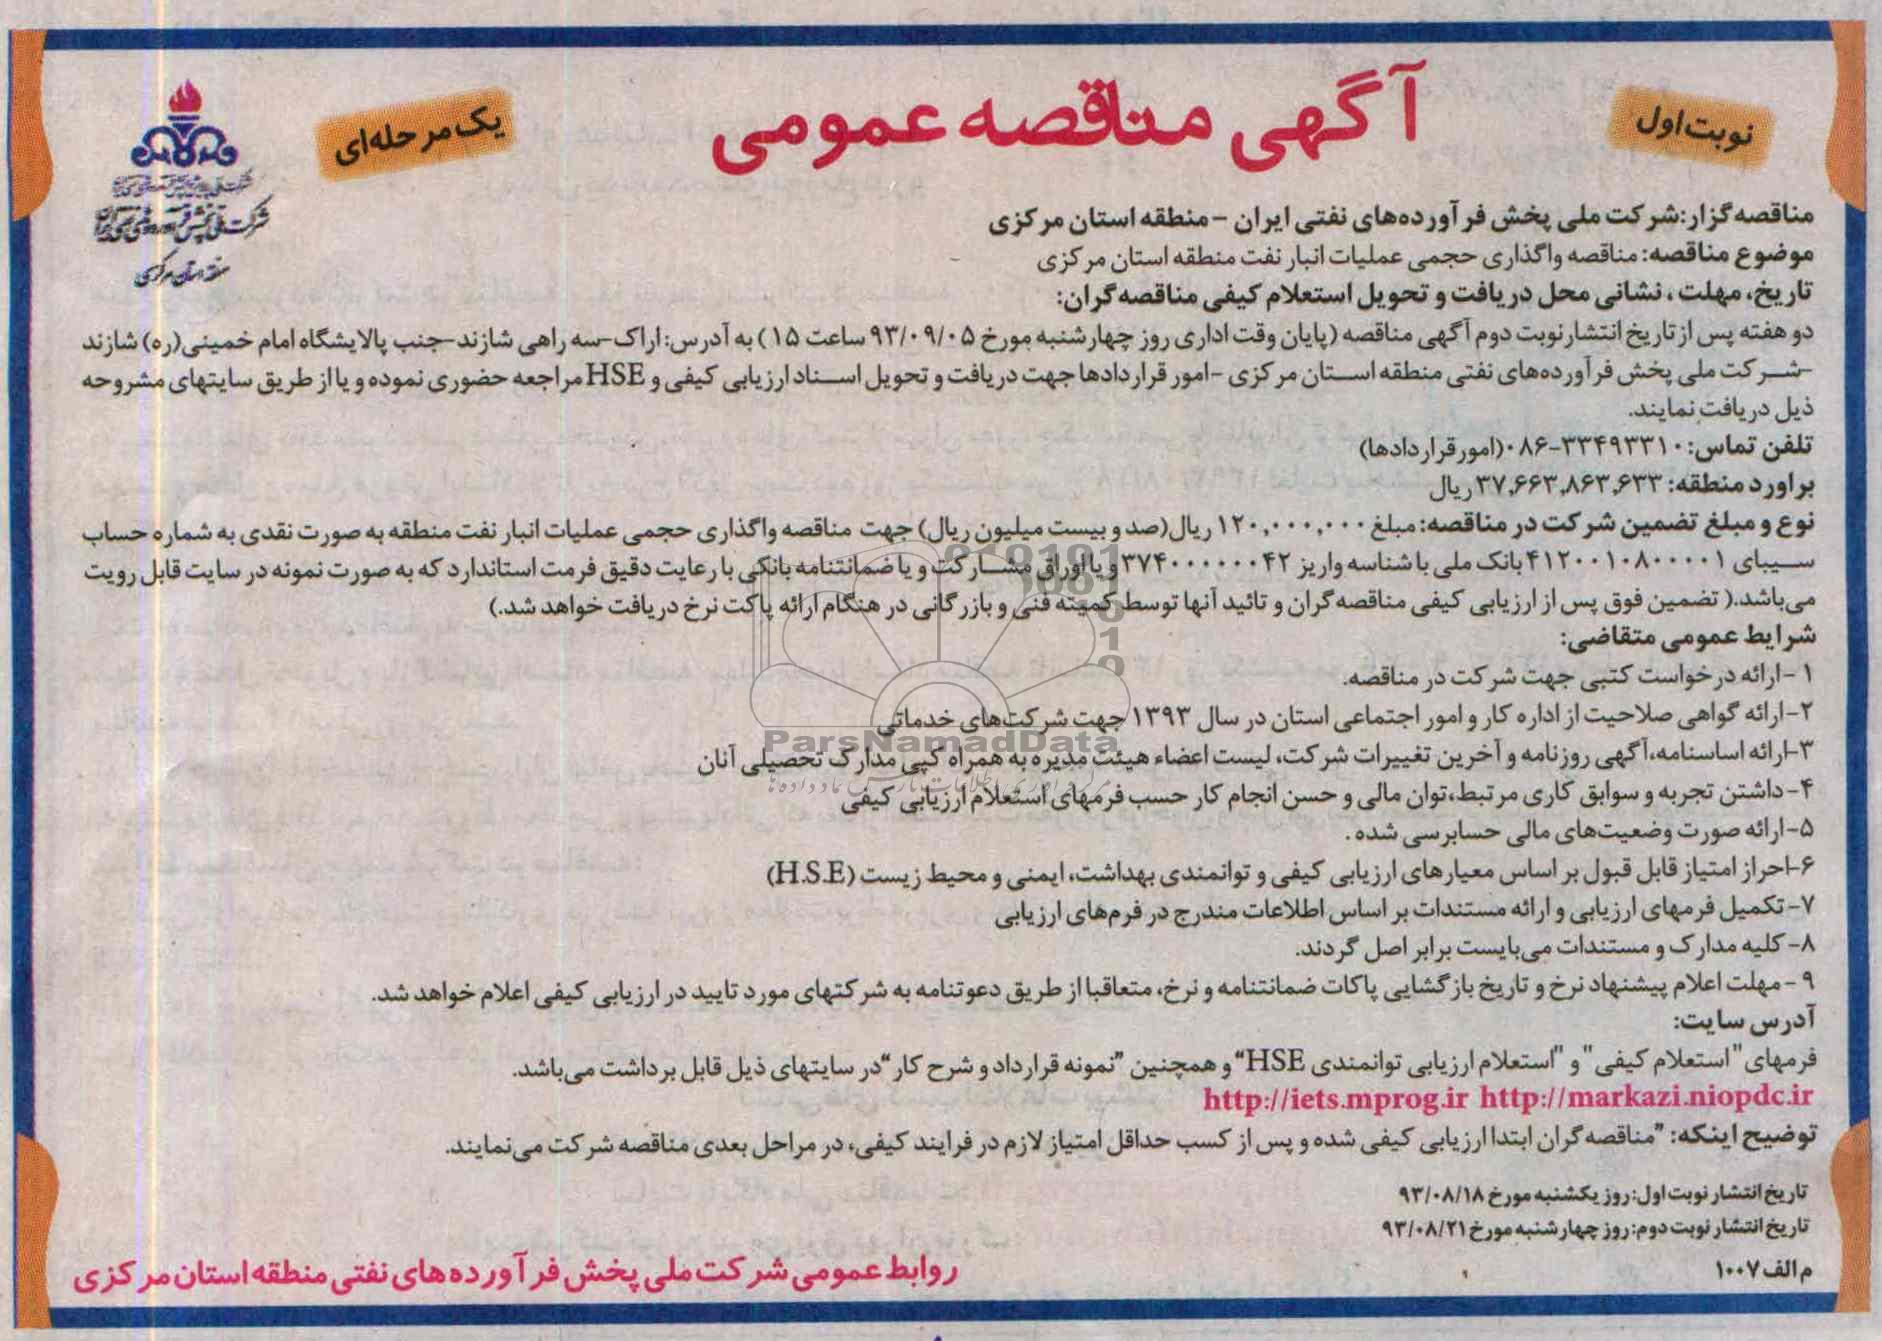 نوبت اول
آگهی مناقصه عمومی
یک مرحله‌ای
شرکت ملی پخش فرآورده‌های نفتی ایران
منطقه استان مرکزی
مناقصه گزار: شرکت ملی پخش فرآورده‌های نفتی ایران - منطقه استان مرکزی
موضوع مناقصه: مناقصه واگذاری حجمی عملیات انبار نفت منطقه استان مرکزی
تاریخ، مهلت، نشانی محل دریافت و تحویل استعلام کیفی مناقصه‌گران:
دو هفته پس از تاریخ انتشار نوبت دوم آگهی مناقصه (پایان وقت اداری روز چهارشنبه مورخ ۹۳/۰۹/۰۵ ساعت ۱۵) به آدرس: اراک-سه راهی شازند-جنب پالایشگاه امام خمینی(ره) شازند
-شرکت ملی پخش فرآورده‌های نفتی منطقه استان مرکزی -امور قراردادها جهت دریافت و تحویل اسناد ارزیابی کیفی و HSE مراجعه حضوری نموده و یا از طریق سایتهای مشروحه
ذیل دریافت نمایند.
تلفن تماس: ۳۳۴۹۳۳۱۰-۰۸۶(امور قراردادها)
براورد منطقه: ۳۷,۶۶۳,۸۶۳,۶۳۳ ریال
نوع و مبلغ تضمین شرکت در مناقصه: مبلغ ۱۲۰,۰۰۰,۰۰۰ ریال(صد و بیست میلیون ریال) جهت مناقصه واگذاری حجمی عملیات انبار نفت منطقه به صورت نقدی به شماره حساب
سیبای ۴۱۲۰۰۱۰۸۰۰۰۰۱ بانک ملی با شناسه واریز ۳۷۴۰۰۰۰۰۰۰۴۲ و یا اوراق مشارکت و یا ضمانتنامه بانکی با رعایت دقیق فرمت استاندارد که به صورت نمونه در سایت قابل رویت
می‌باشد.( تضمین فوق پس از ارزیابی کیفی مناقصه گران و تائید آنها توسط کمیته فنی و بازرگانی در هنگام ارائه پاکت نرخ دریافت خواهد شد.)
شرایط عمومی متقاضی:
۱-ارائه درخواست کتبی جهت شرکت در مناقصه.
۲-ارائه گواهی صلاحیت از اداره کار و امور اجتماعی استان در سال ۱۳۹۳ جهت شرکت‌های خدماتی
۳-ارائه اساسنامه،آگهی روزنامه و آخرین تغییرات شرکت، لیست اعضاء هیئت مدیره به همراه کپی مدارک تحصیلی آنان
۴-داشتن تجربه و سوابق کاری مرتبط،توان مالی و حسن انجام کار حسب فرمهای استعلام ارزیابی کیفی
۵-ارائه صورت وضعیت‌های مالی حسابرسی شده.
۶-احراز امتیاز قابل قبول بر اساس معیارهای ارزیابی کیفی و توانمندی بهداشت، ایمنی و محیط زیست (H.S.E)
۷-تکمیل فرمهای ارزیابی و ارائه مستندات بر اساس اطلاعات مندرج در فرم‌های ارزیابی
۸-کلیه مدارک و مستندات می‌بایست برابر اصل گردند.
۹-مهلت اعلام پیشنهاد نرخ و تاریخ بازگشایی پاکات ضمانتنامه و نرخ، متعاقبا از طریق دعوتنامه به شرکتهای مورد تایید در ارزیابی کیفی اعلام خواهد شد.
آدرس سایت:
فرمهای "استعلام کیفی" و "استعلام ارزیابی توانمندی HSE" و همچنین "نمونه قرارداد و شرح کار" در سایتهای ذیل قابل برداشت می‌باشد.
http://iets.mprog.ir http://markazi.niopdc.ir
توضیح اینکه: "مناقصه گران ابتدا ارزیابی کیفی شده و پس از کسب حداقل امتیاز لازم در فرایند کیفی، در مراحل بعدی مناقصه شرکت می‌نمایند.
تاریخ انتشار نوبت اول: روز یکشنبه مورخ ۹۳/۰۸/۱۸
تاریخ انتشار نوبت دوم: روز چهارشنبه مورخ ۹۳/۰۸/۲۱
م الف ۱۰۰۷
روابط عمومی شرکت ملی پخش فرآورده‌های نفتی منطقه استان مرکزی
ParsNamadData